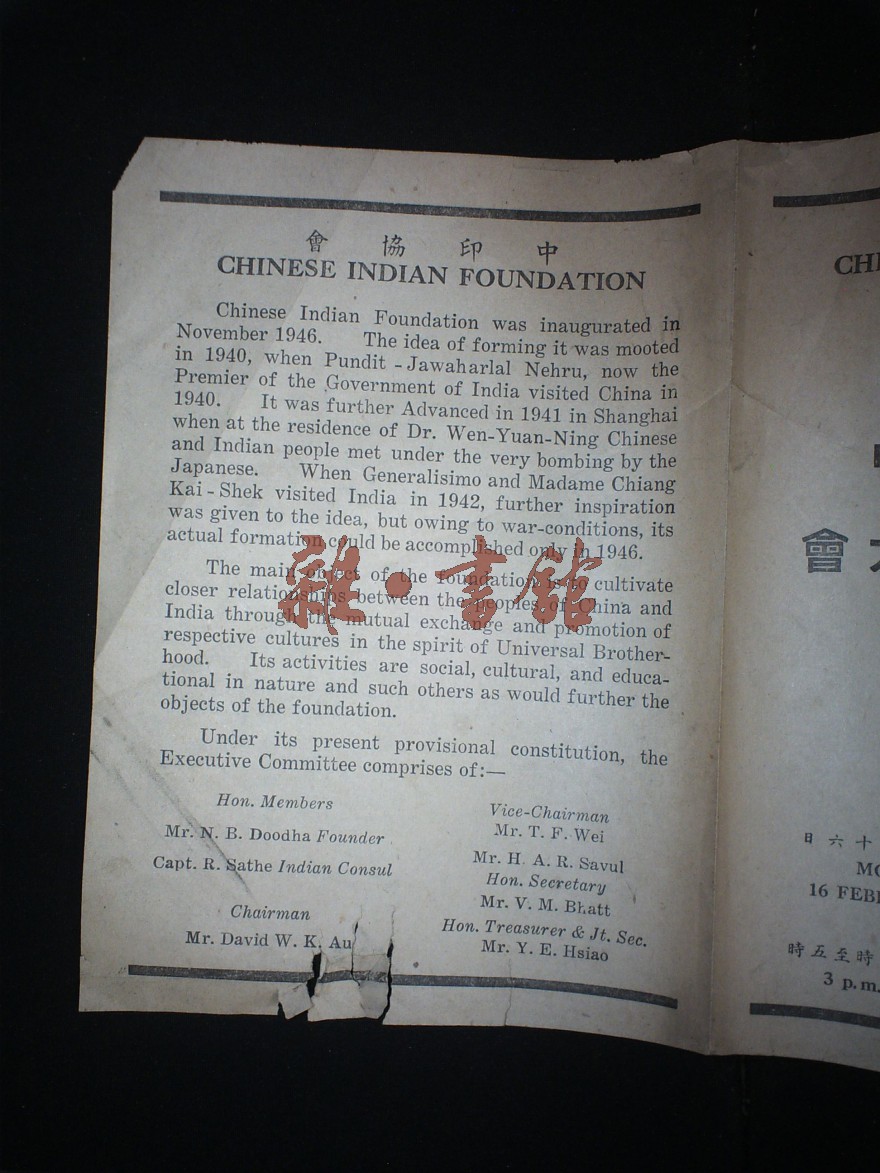 會 協 印 中
CHINESE INDIAN FOUNDATION
Chinese Indian Foundation was inaugurated in
November 1946. The idea of forming it was mooted
in 1940, when Pundit - Jawaharlal Nehru, now the
Premier of the Government of India visited China in
1940. It was further Advanced in 1941 in Shanghai
when at the residence of Dr. Wen-Yuan-Ning Chinese
and Indian people met under the very bombing by the
Japanese. When Generalisimo and Madame Chiang
Kai - Shek visited India in 1942, further inspiration
was given to the idea, but owing to war-conditions, its
actual formation could be accomplished only in 1946.
The main object of the foundation is to cultivate
closer relationships between the peoples of China and
India through the mutual exchange and promotion of
respective cultures in the spirit of Universal Brother-
hood. Its activities are social, cultural, and educa-
tional in nature and such others as would further the
objects of the foundation.
Under its present provisional constitution, the
Executive Committee comprises of:—
Hon. Members
Mr. N. B. Doodha Founder
Capt. R. Sathe Indian Consul
Chairman
Mr. David W. K. Au
Vice-Chairman
Mr. T. F. Wei
Mr. H. A. R. Savul
Hon. Secretary
Mr. V. M. Bhatt
Hon. Treasurer & Jt. Sec.
Mr. Y. E. Hsiao
雜·書館
CHI
會
日 六 十
MO
16 FEB
時 五 至 時
3 p.m.